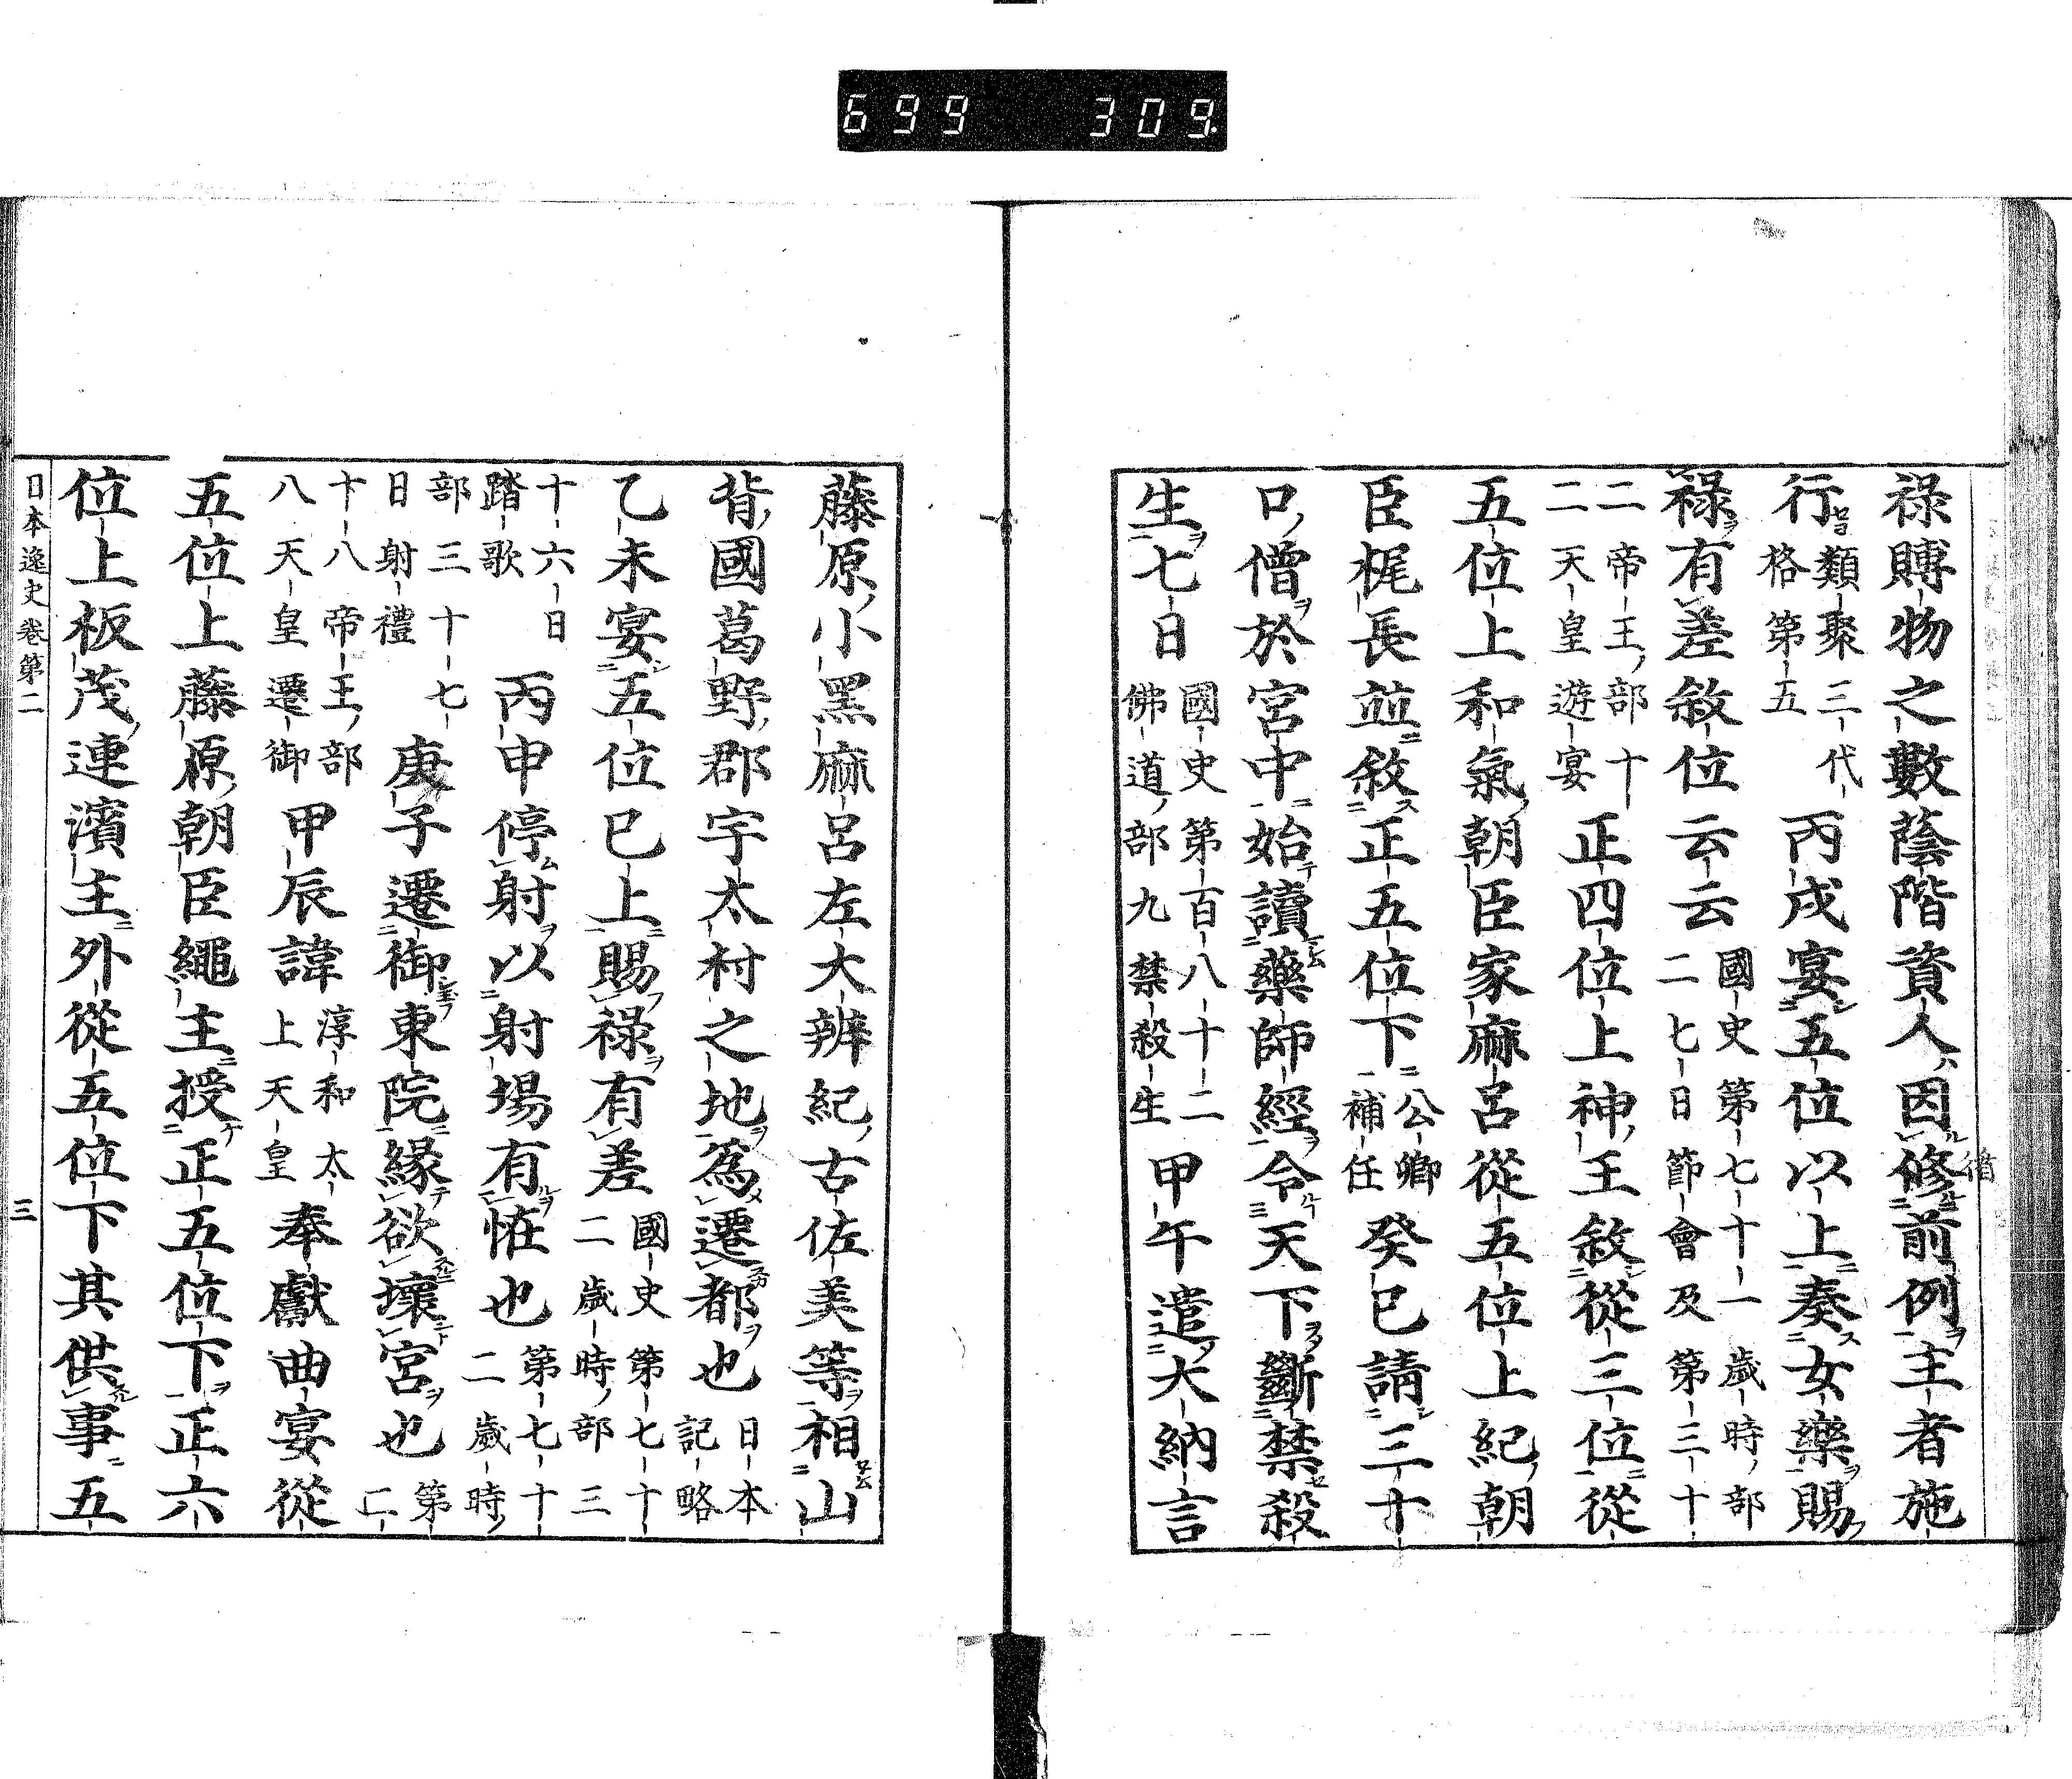 699 309
祿賻物之數蔭階資人因修前例主者施
行類聚三代格第五丙戌宴五位以上奏女樂賜
祿有差敘位云云國史第七十一歲時部二七日節會及第三十
二帝王部十二天皇遊宴正四位上神王敘從三位從
五位上和氣朝臣家麻呂從五位上紀朝
臣梶長並敘正五位下公卿補任癸巳請三十
口僧於宮中始讀藥師經令天下斷禁殺
生七日國史第百八十二佛道部九禁殺生甲午遣大納言
藤原小黑麻呂左大辨紀古佐美等相山
背國葛野郡宇太村之地爲遷都也日本記略
乙未宴五位已上賜祿有差國史第七十二歲時部三
十六日踏歌丙申停射以射場有恠也第七十二歲時
部三十七日射禮庚子遷御東院緣欲壞宮也第二
十八帝王部八天皇遷御甲辰諱淳和太上天皇奉獻曲宴從
五位上藤原朝臣繩主授正五位下正六
位上板茂連濱主外從五位下其供事五
日本逸史卷第二
三